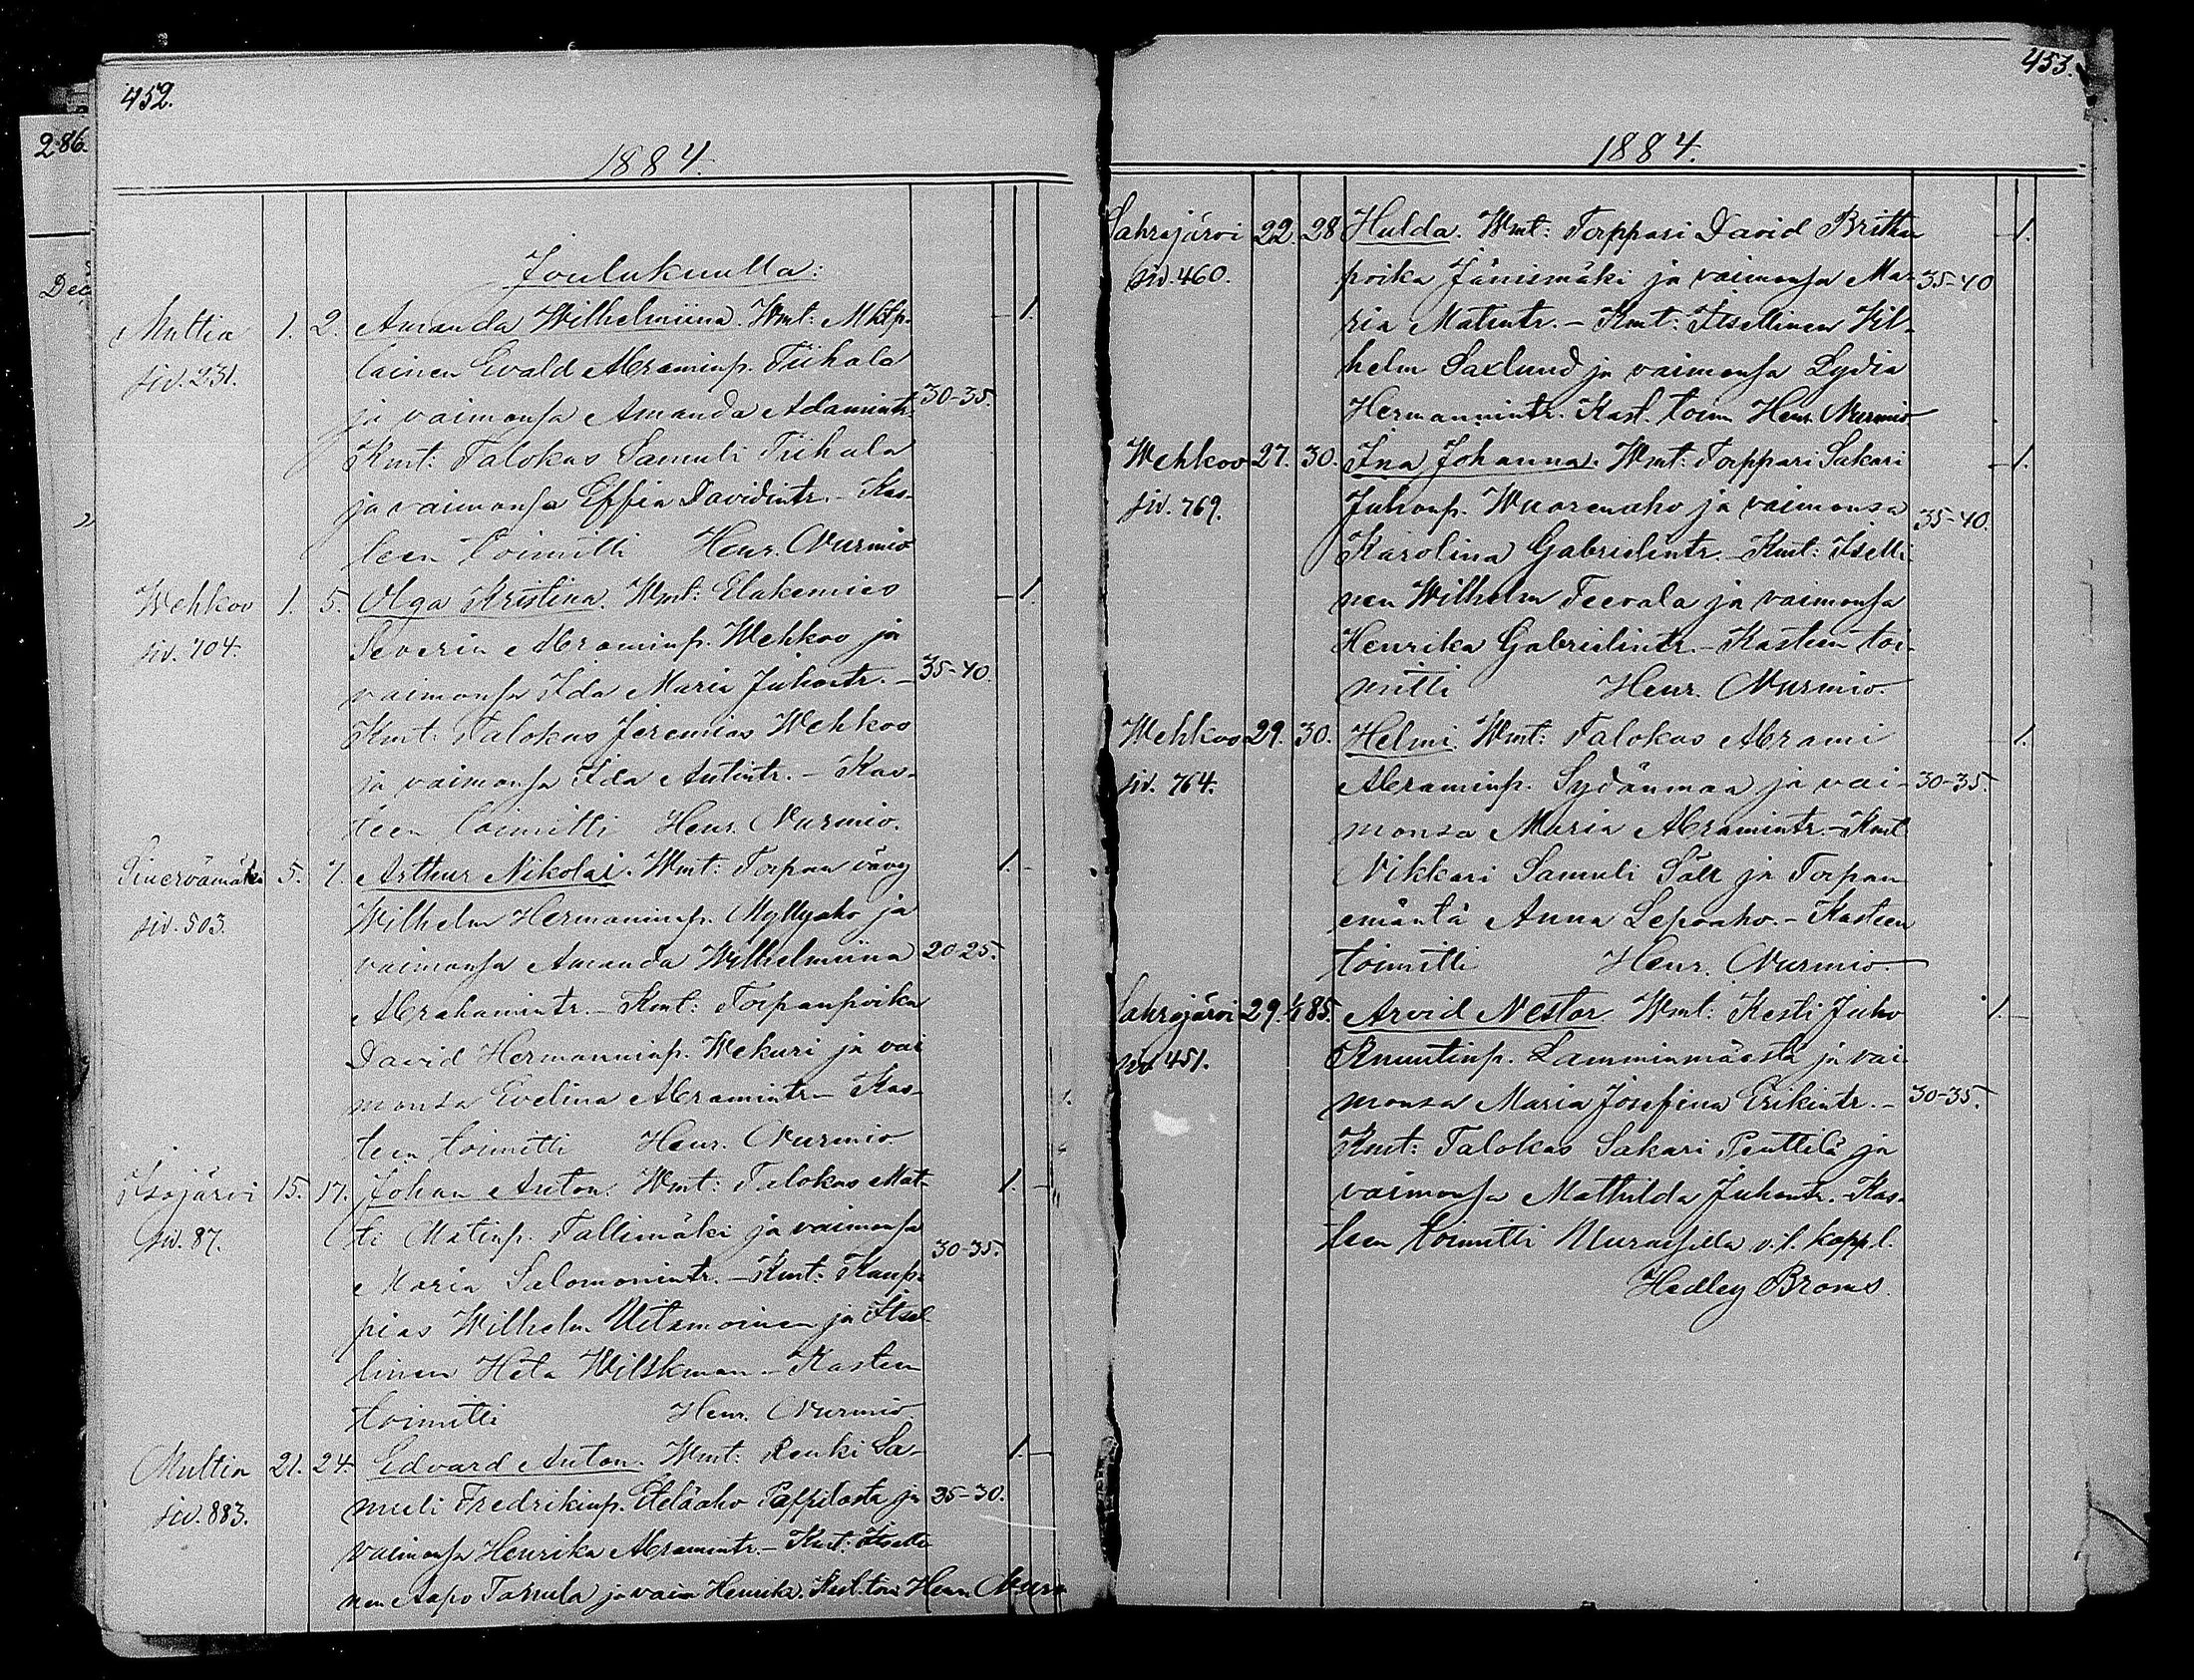 452.
286.
1884.
Dec
Joulukuulla:
Multia 1. 2. Amanda Wilhelmiina. Wmt: Mktp.
siv. 231. lainen Evald Abraminp. Tiihala
ja vaimonsa Amanda Adamintr. 30-35.
Kmt: Talokas Samuli Tiihala
ja vaimonsa Effia Davidintr. - Kas-
teen toimitti Henr. Nurmio
Wehkoo 1. 5. Olga Kristina. Wmt: Eläkemies
siv. 704. Severin Abraminp. Wehkoo ja
vaimonsa Ida Maria Juhontr. - 35-40.
Kmt: Talokas Jeremias Wehkoo
ja vaimonsa Ida Antintr. - Kas-
teen toimitti Henr. Nurmio.
Sinervämäki 5. 7. Arthur Nikolai. Wmt: Torpan vävy 1. -
siv. 503. Wilhelm Hermaninp. Myllyaho ja
vaimonsa Amanda Wilhelmiina 20-25.
Abrahamintr. - Kmt: Torpanpoika
David Hermanninp. Wekuri ja vai
monsa Evelina Abramintr. - Kas-
teen toimitti Henr. Nurmio
Isojärvi 15. 17. Johan Anton. Wmt: Talokas Mat- 1. -
siv. 87. ti Matinp. Tallimäki ja vaimonsa
Maria Salomonintr. - Kmt: Kaup- 30-35.
pias Wilhelm Uitamoinen ja Itsel-
linen Heta Wilskman. - Kasteen
toimitti Henr. Nurmio
Multia 21. 24. Edvard Anton. Wmt: Renki Sa- 1. -
siv. 883. muli Fredrikinp. Eteläaho Pappilasta ja 25-30.
vaimonsa Henrika Abramintr. - Kmt: Itselli
nen Aapo Tarvula ja vaim Henrika. Kast. toim Henr Nurm
453.
1884.
Sahrajärvi 22. 28 Hulda. Wmt: Torppari David Britan - 1.
siv. 460. poika Jänismäki ja vaimonsa Ma- 35-40
ria Matintr. - Kmt: Itsellinen Vil-
helm Saxlund ja vaimonsa Lydia
Hermannintr. Kast. toim Henr. Nurmio
Wehkoo 27. 30. Ina Johanna. Wmt: Torppari Sakari - 1.
siv. 769. Juhonp. Wuorenaho ja vaimonsa 35-40.
Karolina Gabrielintr. - Kmt: Itselli
nen Wilhelm Teerala ja vaimonsa
Henrika Gabrielintr. - Kasteen toi-
mitti Henr. Nurmio.
Wehkoo 29. 30. Helmi. Wmt: Talokas Abrami - 1.
siv. 764. Abraminp. Sydänmaa ja vai- 30-35.
monsa Maria Abramintr. - Kmt
Nikkari Samuli Säll ja Torpan
emäntä Anna Lepoaho. - Kasteen
toimitti Henr. Nurmio.
Sahrajärvi 29. 1/1 85. Arvid Nestor Wmt: Kesti Juho 1. -
siv 451. Knuutinp. Lamminmäestä ja vai
monsa Maria Josefina Erikintr. - 30-35.
Kmt: Talokas Sakari Penttilä ja
vaimonsa Mathilda Juhontr. - Kas-
teen toimitti v.t. kappl.
Hedley Broms.